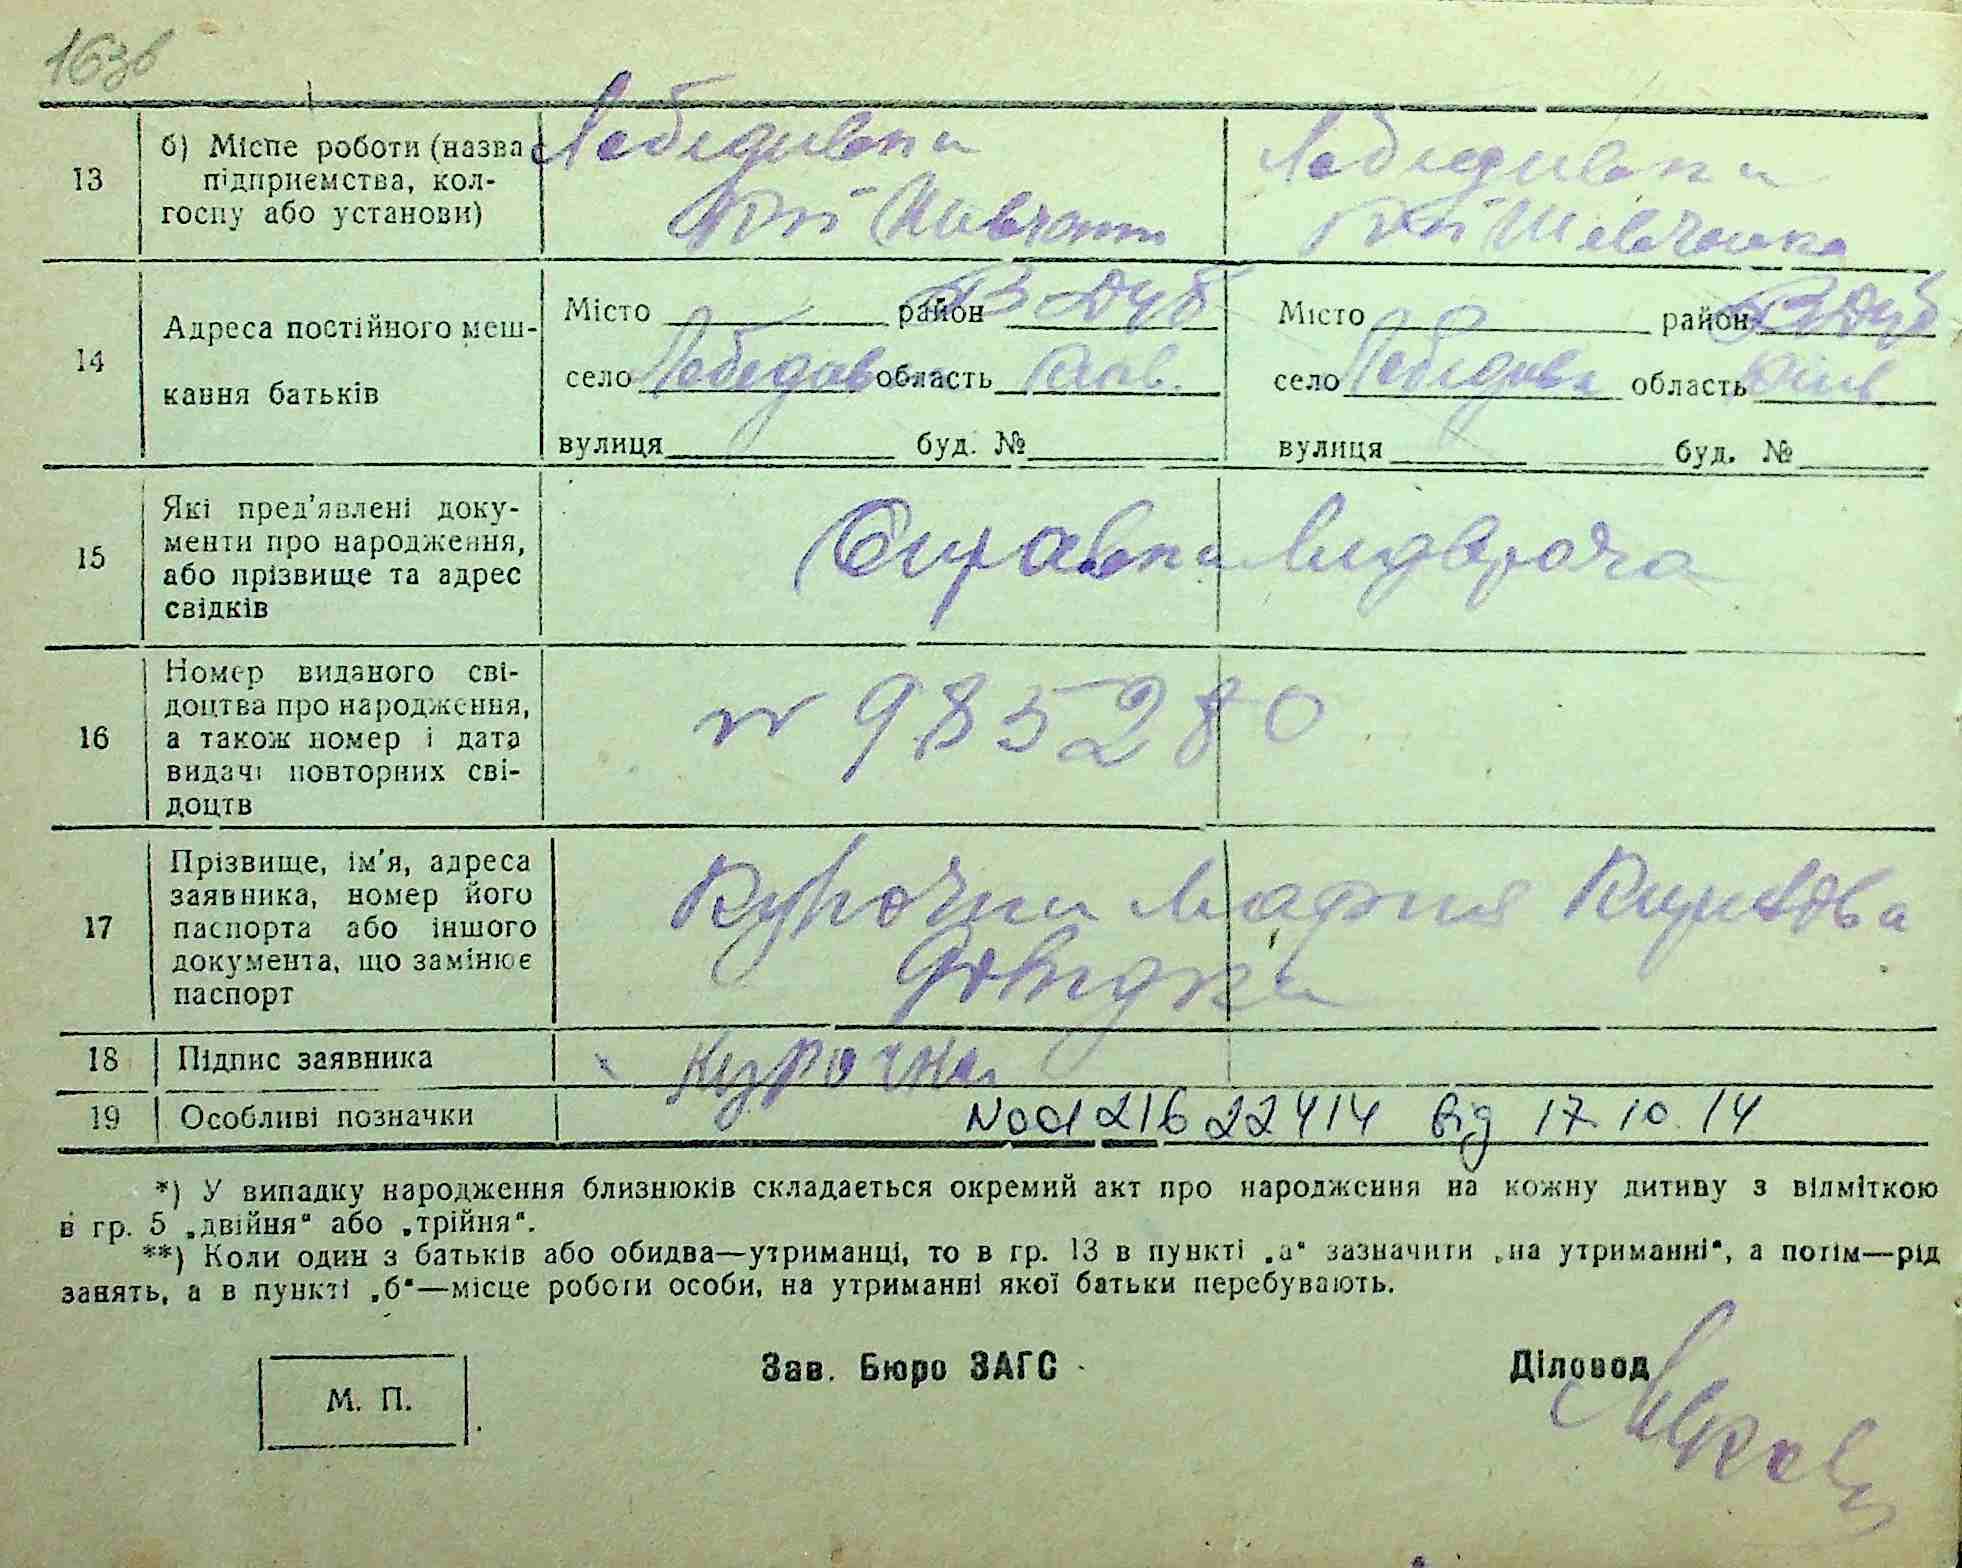 16зв
13
б) Місце роботи (назва підприємства, кол-
госпу або установи)
с Лебедивка
Шевченка
Лебедивка
Шевченка
14
Адреса постійного меш-
кання батьків
Місто район В Дуб
село Лебедивка область Київ.
вулиця буд. №
Місто район В Дуб
село Лебедивка область Київ
вулиця буд. №
15
Які пред'явлені доку-
менти про народження,
або прізвище та адрес
свідків
Справка
16
Номер виданого сві-
доцтва про народження,
а також номер і дата
видачі повторних сві-
доцтв
№ 985280
17
Прізвище, ім'я, адреса
заявника, номер його
паспорта або іншого
документа, що замінює
паспорт
Курочка Мария
Довидка
18
Підпис заявника
Курочка
19
Особливі позначки
від 17.10.14
*) У випадку народження близнюків складається окремий акт про народження на кожну дитину з відміткою
в гр. 5 „двійня“ або „трійня“.
**) Коли один з батьків або обидва—утриманці, то в гр. 13 в пункті „а“ зазначити „на утриманні“, а потім—рід
занять, а в пункті „б“—місце роботи особи, на утриманні якої батьки перебувають.
М. П.
Зав. Бюро ЗАГС
Діловод